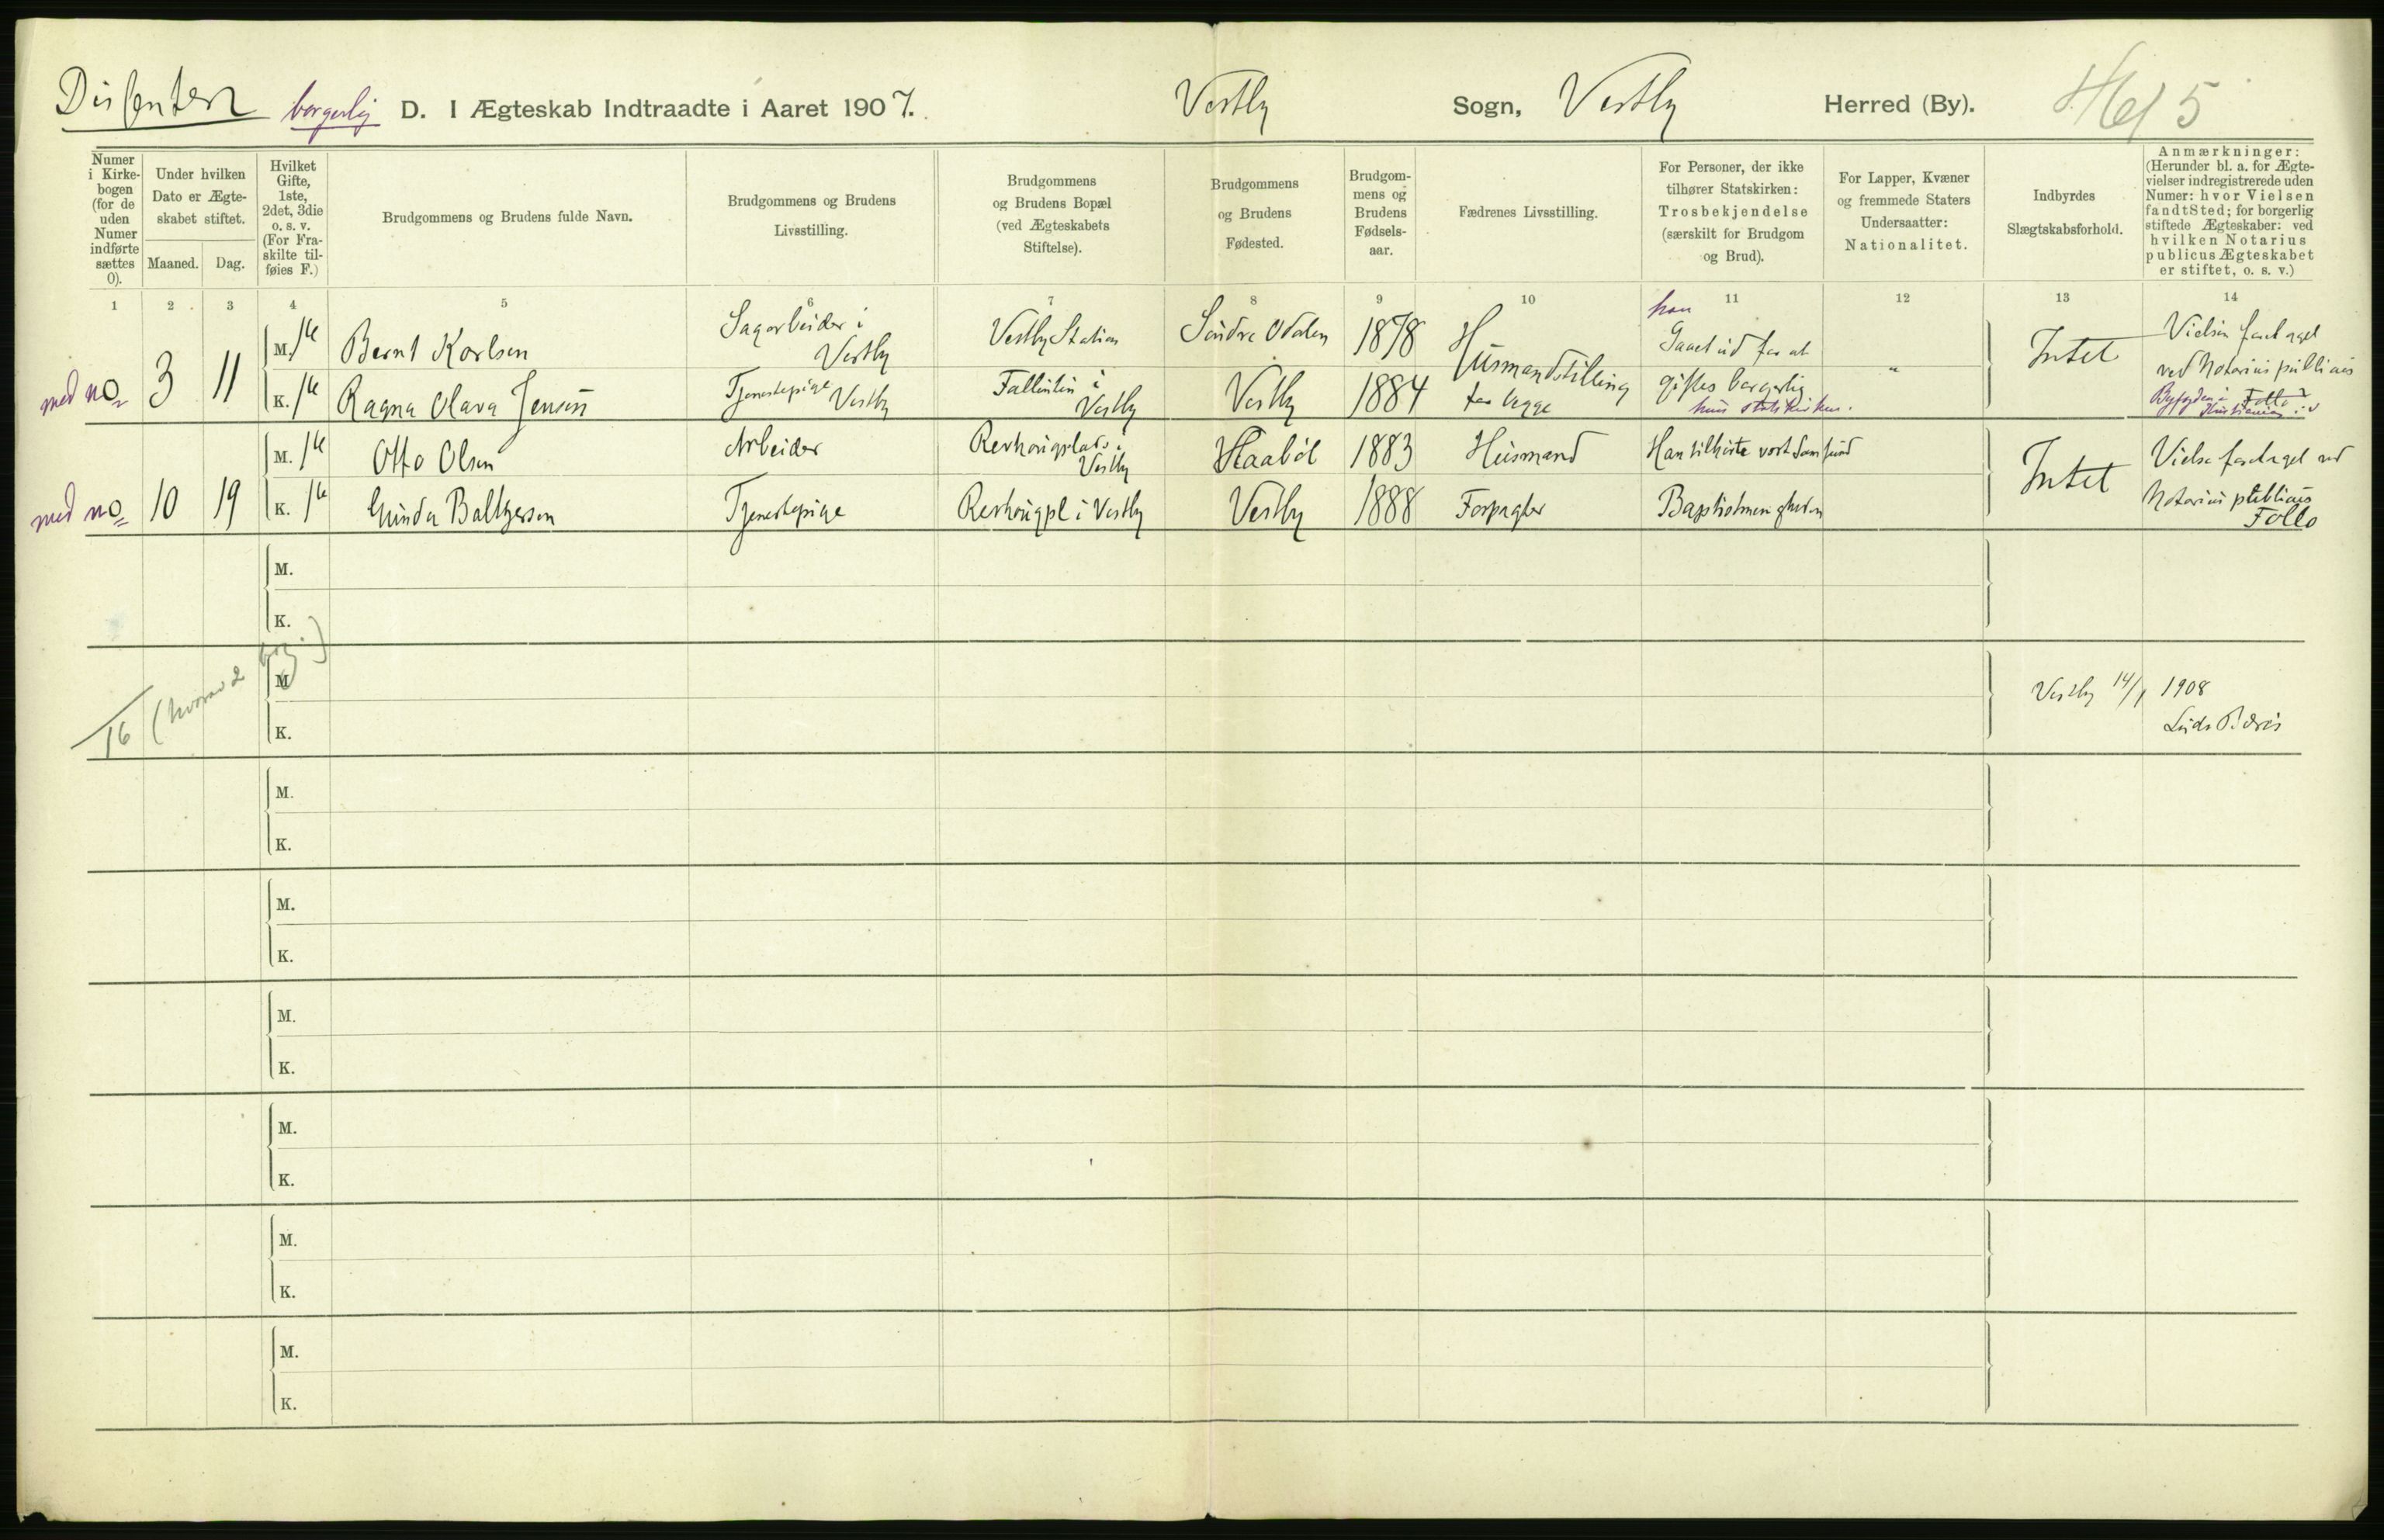 Dissentere borgerlig D. I Ægteskab Indtraadte i Aaret 1907. Vestby Sogn, Vestby Herred (By). 5
Numer i Kirkebogen (for de uden Numer indførte sættes 0).
Under hvilken Dato er Ægteskabet stiftet.
Maaned. Dag.
Hvilket Gifte, 1ste, 2det, 3die o. s. v. (For Fraskilte tilføies F.)
Brudgommens og Brudens fulde Navn.
Brudgommens og Brudens Livsstilling.
Brudgommens og Brudens Bopæl (ved Ægteskabets Stiftelse).
Brudgommens og Brudens Fødested.
Brudgommens og Brudens Fødselsaar.
Fædrenes Livsstilling.
For Personer, der ikke tilhører Statskirken: Trosbekjendelse (særskilt for Brudgom og Brud).
For Lapper, Kvæner og fremmede Staters Undersaatter: Nationalitet.
Indbyrdes Slægtskabsforhold.
Anmærkninger: (Herunder bl. a. for Ægtevielser indregistrerede uden Numer: hvor Vielsen fandt Sted; for borgerlig stiftede Ægteskaber: ved hvilken Notarius publicus Ægteskabet er stiftet, o. s. v.)
1 2 3 4 5 6 7 8 9 10 11 12 13 14
med no 3 11 M. 1ste Bernt Karlsen Sagarbeider i Vestby Vestby Station Søndre Odalen 1878 Husmandstilling for begge han Gaaet ud for at giftes borgerlig " Intet Vielsen foretaget ved Notarius publicus
K. 1ste Ragna Olava Jensen Tjenestepige Vestby Fallentin i Vestby Vestby 1884 hun statskirken. Byfogden i Kristiania
med no 10 19 M. 1ste Otto Olsen Arbeider Revhougplads i Vestby Haabøl 1883 Husmand Han tilhørte vort Samfund Intet Vielse foretaget ved
K. 1ste Gunda Baltzersen Tjenestepige Revhougpl i Vestby Vestby 1888 Forpagter Baptistmenigheden Notarius publicus Follo
M.
K.
16 (hvorav 2 borg.)
M.
K.
Vestby 14/1 1908
M.
K.
M.
K.
M.
K.
M.
K.
M.
K.
M.
K.